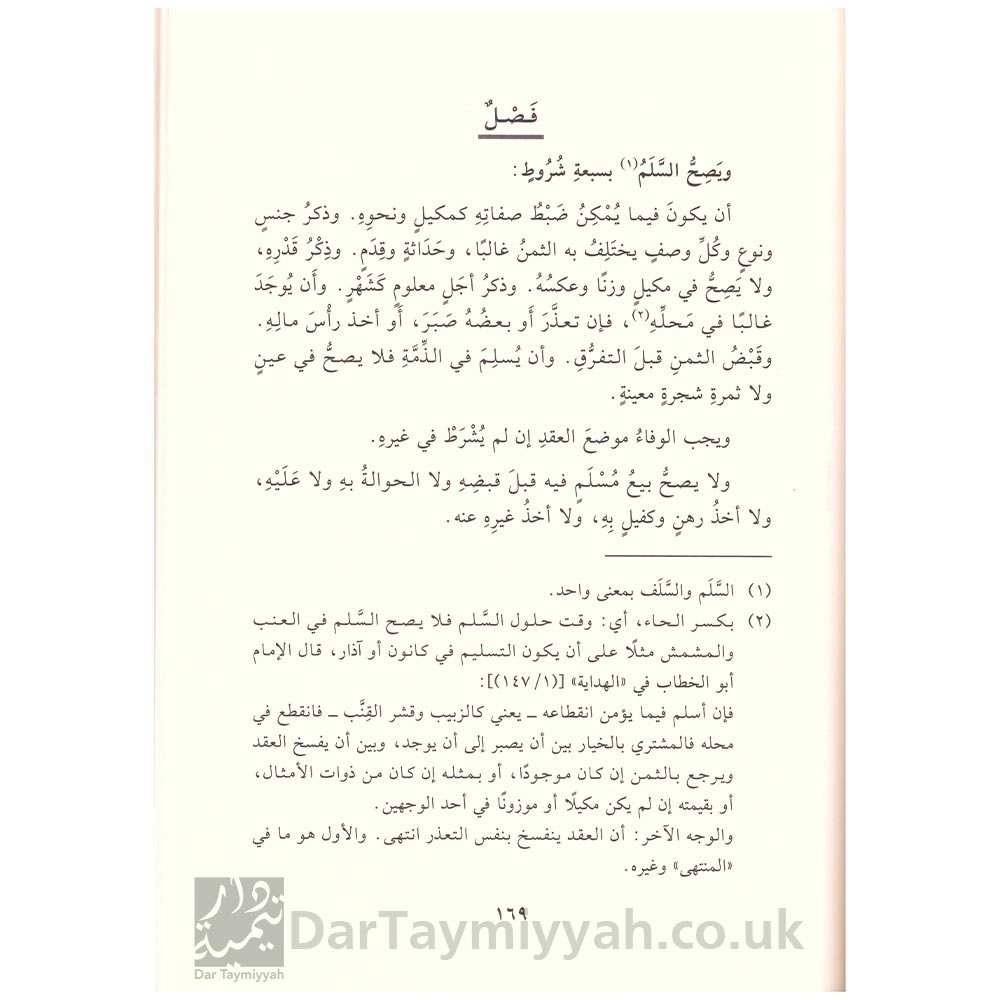 فَصْلٌ
ويَصِحُّ السَّلَمُ(١) بسبعةِ شُرُوطٍ:
أن يكونَ فيما يُمْكِنُ ضَبْطُ صفاتِهِ كمكيلٍ ونحوِهِ. وذكرُ جنسٍ
ونوعٍ وكُلِّ وصفٍ يختَلِفُ به الثمنُ غالبًا، وحَدَاثةٍ وقِدَمٍ. وذِكْرُ قَدْرِهِ،
ولا يَصِحُّ في مكيلٍ وزنًا وعكسُهُ. وذكرُ أجَلٍ معلومٍ كَشَهْرٍ. وأَن يُوجَدَ
غالبًا في مَحلِّهِ(٢)، فإن تعذَّرَ أَو بعضُهُ صَبَرَ، أَو أخذ رأْسَ مالِهِ.
وقَبْضُ الثمنِ قبلَ التفرُّقِ. وأن يُسلِمَ في الذِّمَّةِ فلا يصحُّ في عينٍ
ولا ثمرةِ شجرةٍ معينةٍ.
ويجب الوفاءُ موضعَ العقدِ إن لم يُشْرَطْ في غيرِهِ.
ولا يصحُّ بيعُ مُسْلَمٍ فيه قبلَ قبضِهِ ولا الحوالةُ بهِ ولا عَلَيْهِ،
ولا أخذُ رهنٍ وكفيلٍ بِهِ، ولا أخذُ غيرِهِ عنه.
(١) السَّلَم والسَّلَف بمعنى واحد.
(٢) بكسر الحاء، أي: وقت حلول السَّلم فلا يصح السَّلم في العنب
والمشمش مثلًا على أن يكون التسليم في كانون أو آذار، قال الإمام
أبو الخطاب في «الهداية» [(١/١٤٧)]:
فإن أسلم فيما يؤمن انقطاعه ــ يعني كالزبيب وقشر القِنَّب ــ فانقطع في
محله فالمشتري بالخيار بين أن يصبر إلى أن يوجد، وبين أن يفسخ العقد
ويرجع بالثمن إن كان موجودًا، أو بمثله إن كان من ذوات الأمثال،
أو بقيمته إن لم يكن مكيلًا أو موزونًا في أحد الوجهين.
والوجه الآخر: أن العقد ينفسخ بنفس التعذر انتهى. والأول هو ما في
«المنتهى» وغيره.
١٦٩
دار تيمية
DarTaymiyyah.co.uk
Dar Taymiyyah